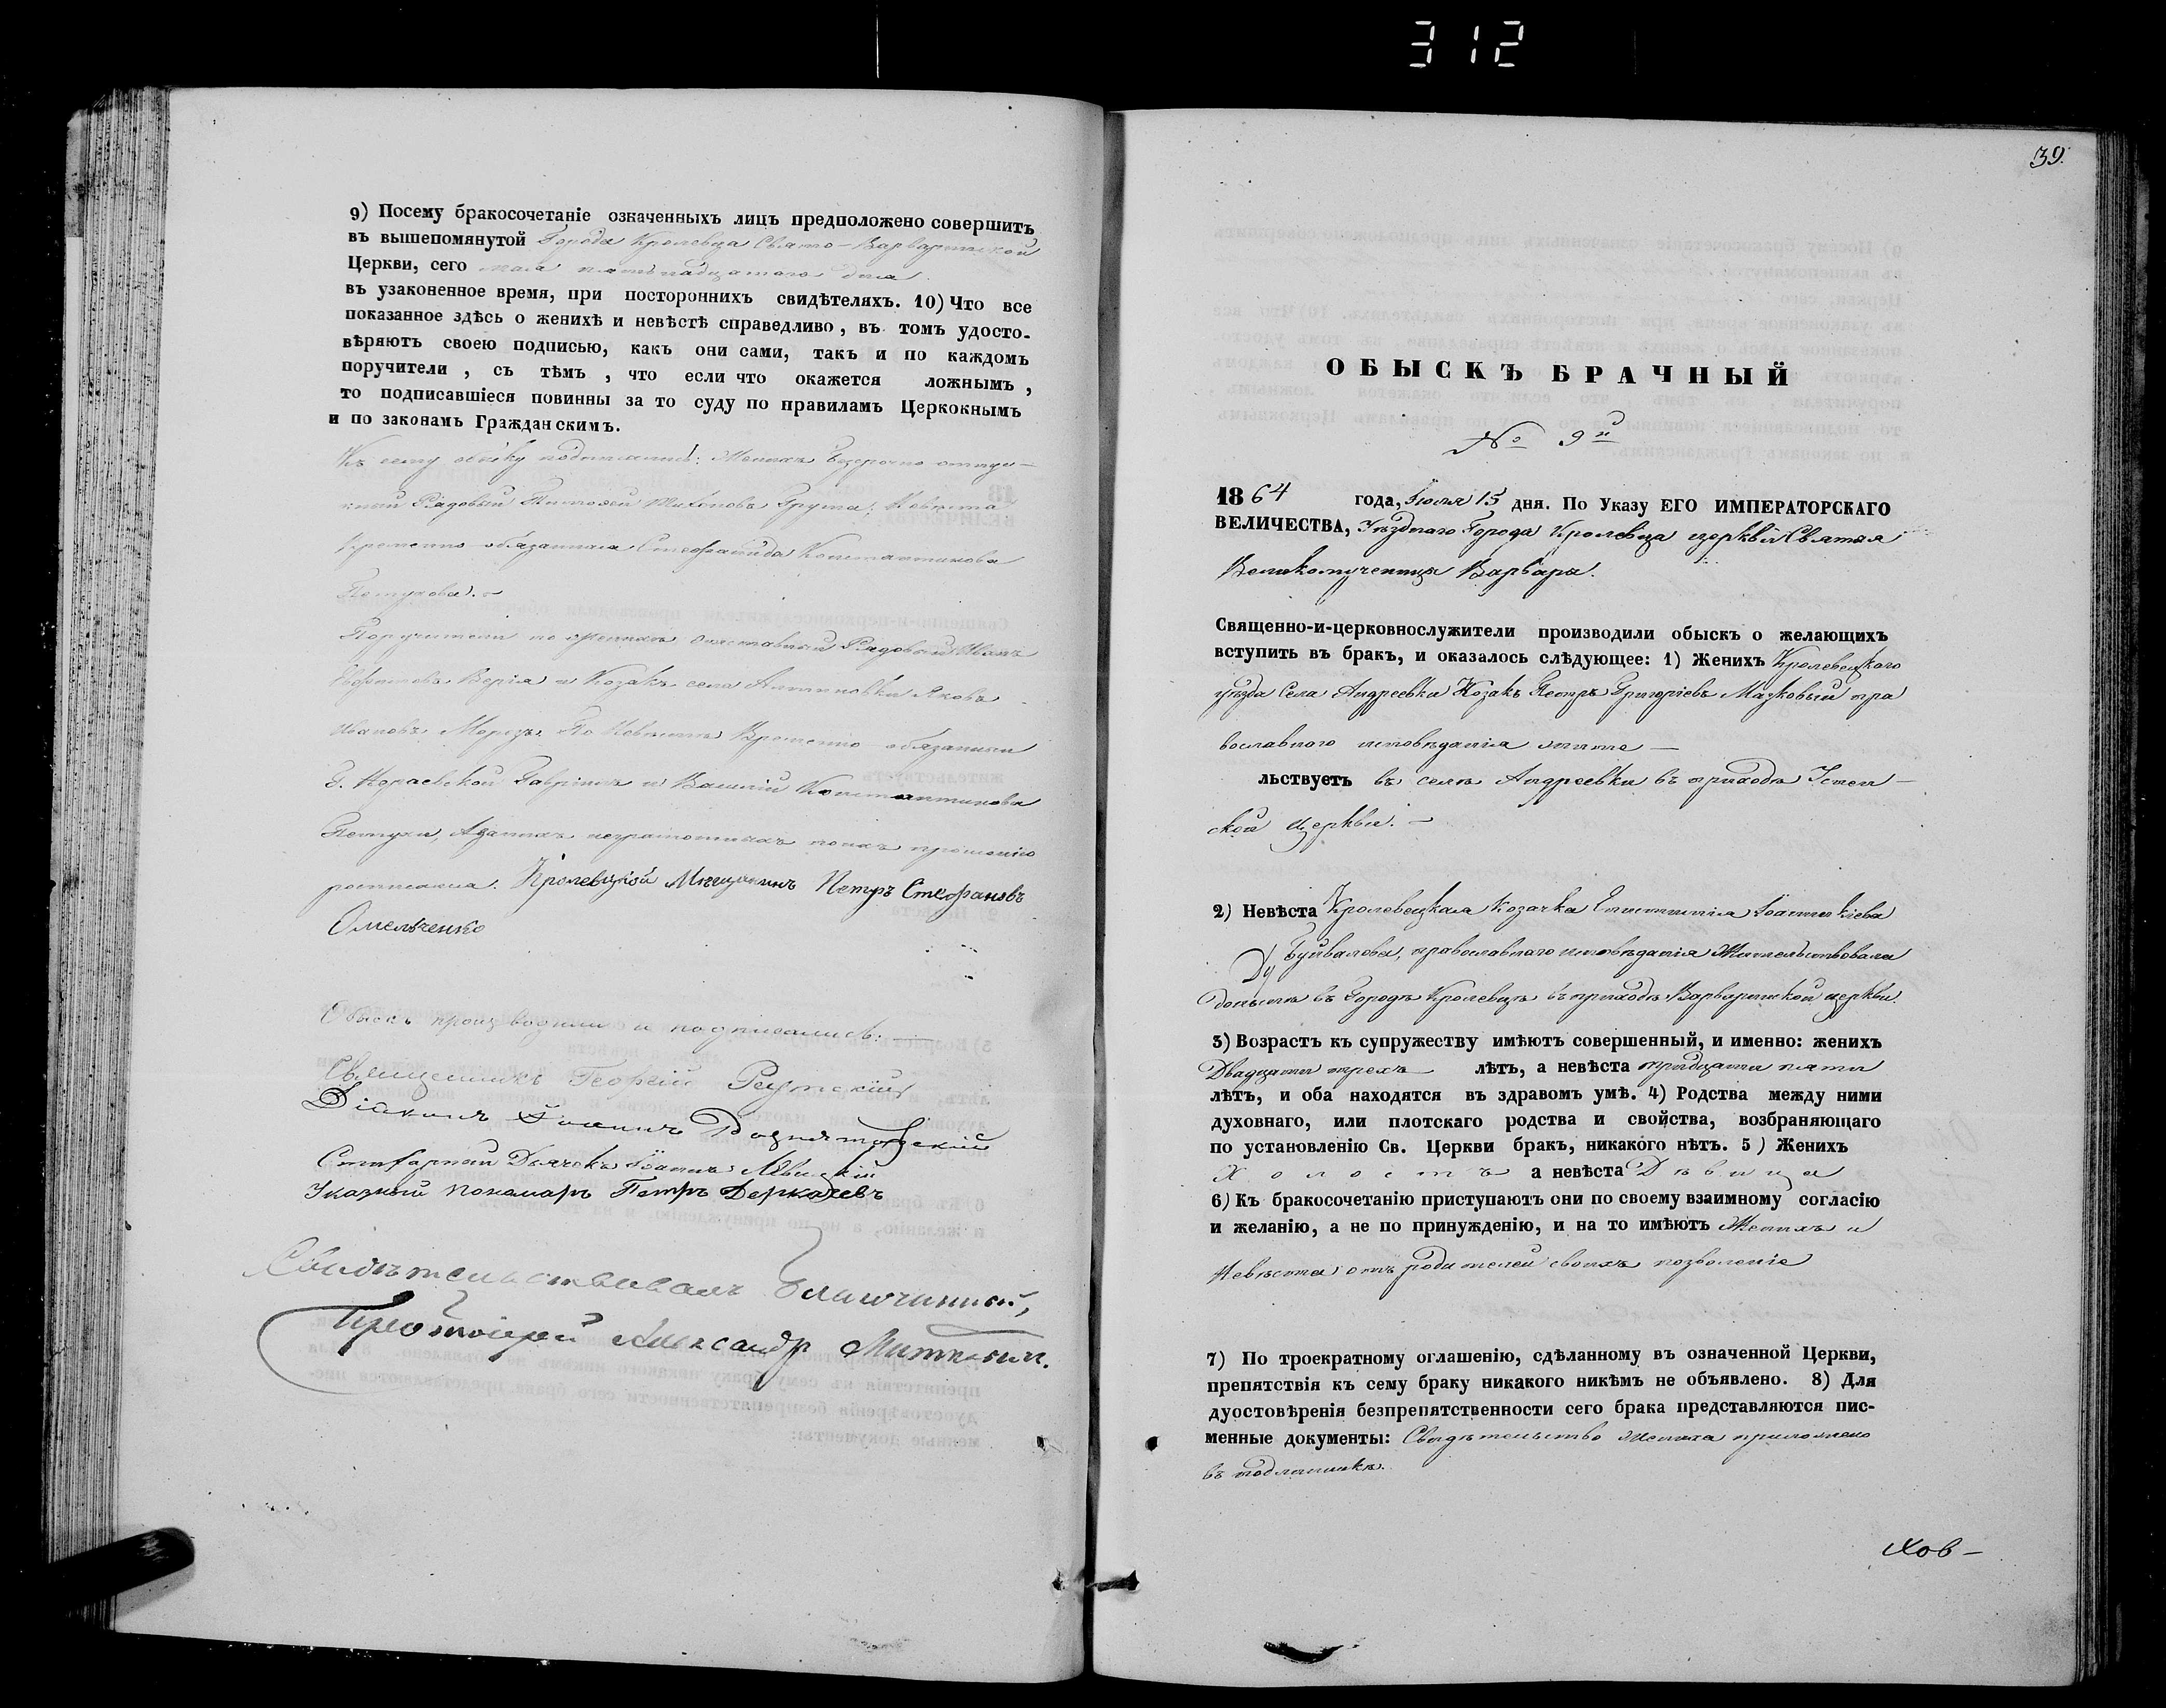 312
9) Посему бракосочетаніе означенныхъ лицъ предположено совершить
въ вышепомянутой Города Кролевца Свято-Варваринской
Церкви, сего мая пятьнадцатаго дня
въ узаконенное время, при постороннихъ свидѣтеляхъ. 10) Что все
показанное здѣсь о женихѣ и невѣстѣ справедливо, въ томъ удосто-
вѣряютъ своею подписью, какъ они сами, такъ и по каждомъ
поручители, съ тѣмъ, что если что окажется ложнымъ,
то подписавшіеся повинны за то суду по правиламъ Церкокнымъ
и по законамъ Гражданскимъ.
Къ сему обыску подписались: Женихъ Безсрочно отпуск-
ный Рядовый Тимофей Тихоновъ; Невѣста
Временно-обязанная Константинова
Петухова. —
Поручители по женихѣ Отставный Рядовый Иванъ
и Козакъ села Яковъ
Ивановъ Морозъ. По Невѣстѣ Временно-обязанныи
Гавріилъ и Василій Константиновы
Петухи, а за нихъ неграмотныхъ по ихъ прошенію
росписался. Кролевецкой Мещанинъ Петръ Стефановъ
Омельченко
Обыскъ производили и подписались: —
Священникъ Георгій
Діаконъ Іоаннъ
Дьячекъ Іоаннъ Левицкій
Указный пономарь Петръ Деркачевъ
Свидѣтельствовалъ Благочинный,
Протоіерей Александр Миткевич.
39.
ОБЫСКЪ БРАЧНЫЙ
№ 9й
1864 года, Іюля 15 дня. По Указу ЕГО ИМПЕРАТОРСКАГО
ВЕЛИЧЕСТВА, Уѣзднаго Города Кролевца церкви Святыя
Великомученицы Варвары.
Священно-и-церковнослужители производили обыскъ о желающихъ
вступить въ бракъ, и оказалось слѣдующее: 1) Женихъ Кролевецкаго
уѣзда Села Андреевки Козакъ Петръ Григоріевъ Мазковый пра
вославнаго исповѣданія жите —
льствуетъ въ селѣ Андреевки въ приходѣ Успен —
ской церкви. —
2) Невѣста Кролевецкая Козачка Епистимія Іоанникіева
Буйвалова, православнаго исповѣданія Жительствовала
донынѣ въ Городѣ Кролевцѣ въ приходѣ Варваринской церкви.
3) Возрастъ къ супружеству имѣютъ совершенный, и именно: женихъ
Двадцати трехъ — лѣтъ, а невѣста тридцати пяти
лѣтъ, и оба находятся въ здравомъ умѣ. 4) Родства между ними
духовнаго, или плотскаго родства и свойства, возбраняющаго
по установленію Св. Церкви бракъ, никакого нѣтъ. 5) Женихъ
Холостъ а невѣста Дѣвица
6) Къ бракосочетанію приступаютъ они по своему взаимному согласію
и желанію, а не по принужденію, и на то имѣютъ Женихъ и
Невѣста отъ родителей своихъ позволеніе
7) По троекратному оглашенію, сдѣланному въ означенной Церкви,
препятствія къ сему браку никакого никѣмъ не объявлено. 8) Для
дуостовѣренія безпрепятственности сего брака представляются пис-
менные документы: Свидѣтельство жениха приложено
въ подлинникѣ.